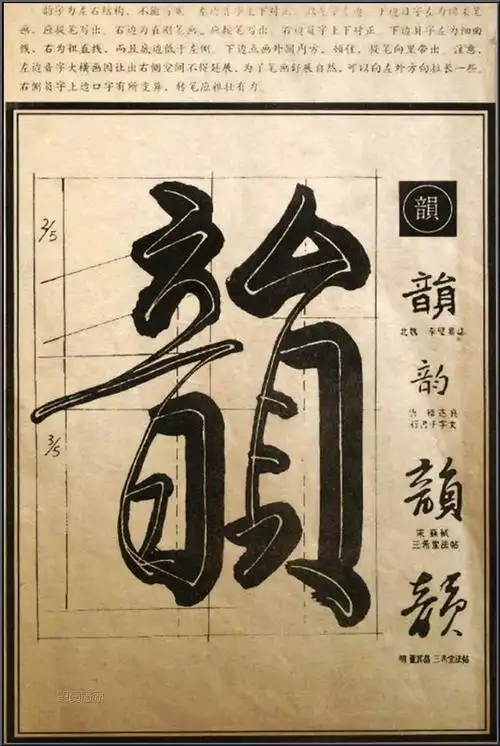 韵字为左右结构，不能写
左边音字上下对正
下边日字左为
画，应提笔写出。右边为直侧笔画，应按笔写出。右边員字上下对正。下边目字左为细曲
线，右为粗直线，而且底边低于左侧。下边点画外圆内方，顿住，提笔向里带出。注意，
左边音字大横画因让出右侧空间不得延展，为了笔画舒展自然，可以向左外方向拉长一些。
右侧員字上边口字有所变异，转笔应粗壮有力。
2/5
3/5
韻
韻
北魏
韵
行书千字文
韻
宋 蘇軾
三希堂法帖
韻
明 董其昌 三希堂法帖
韻